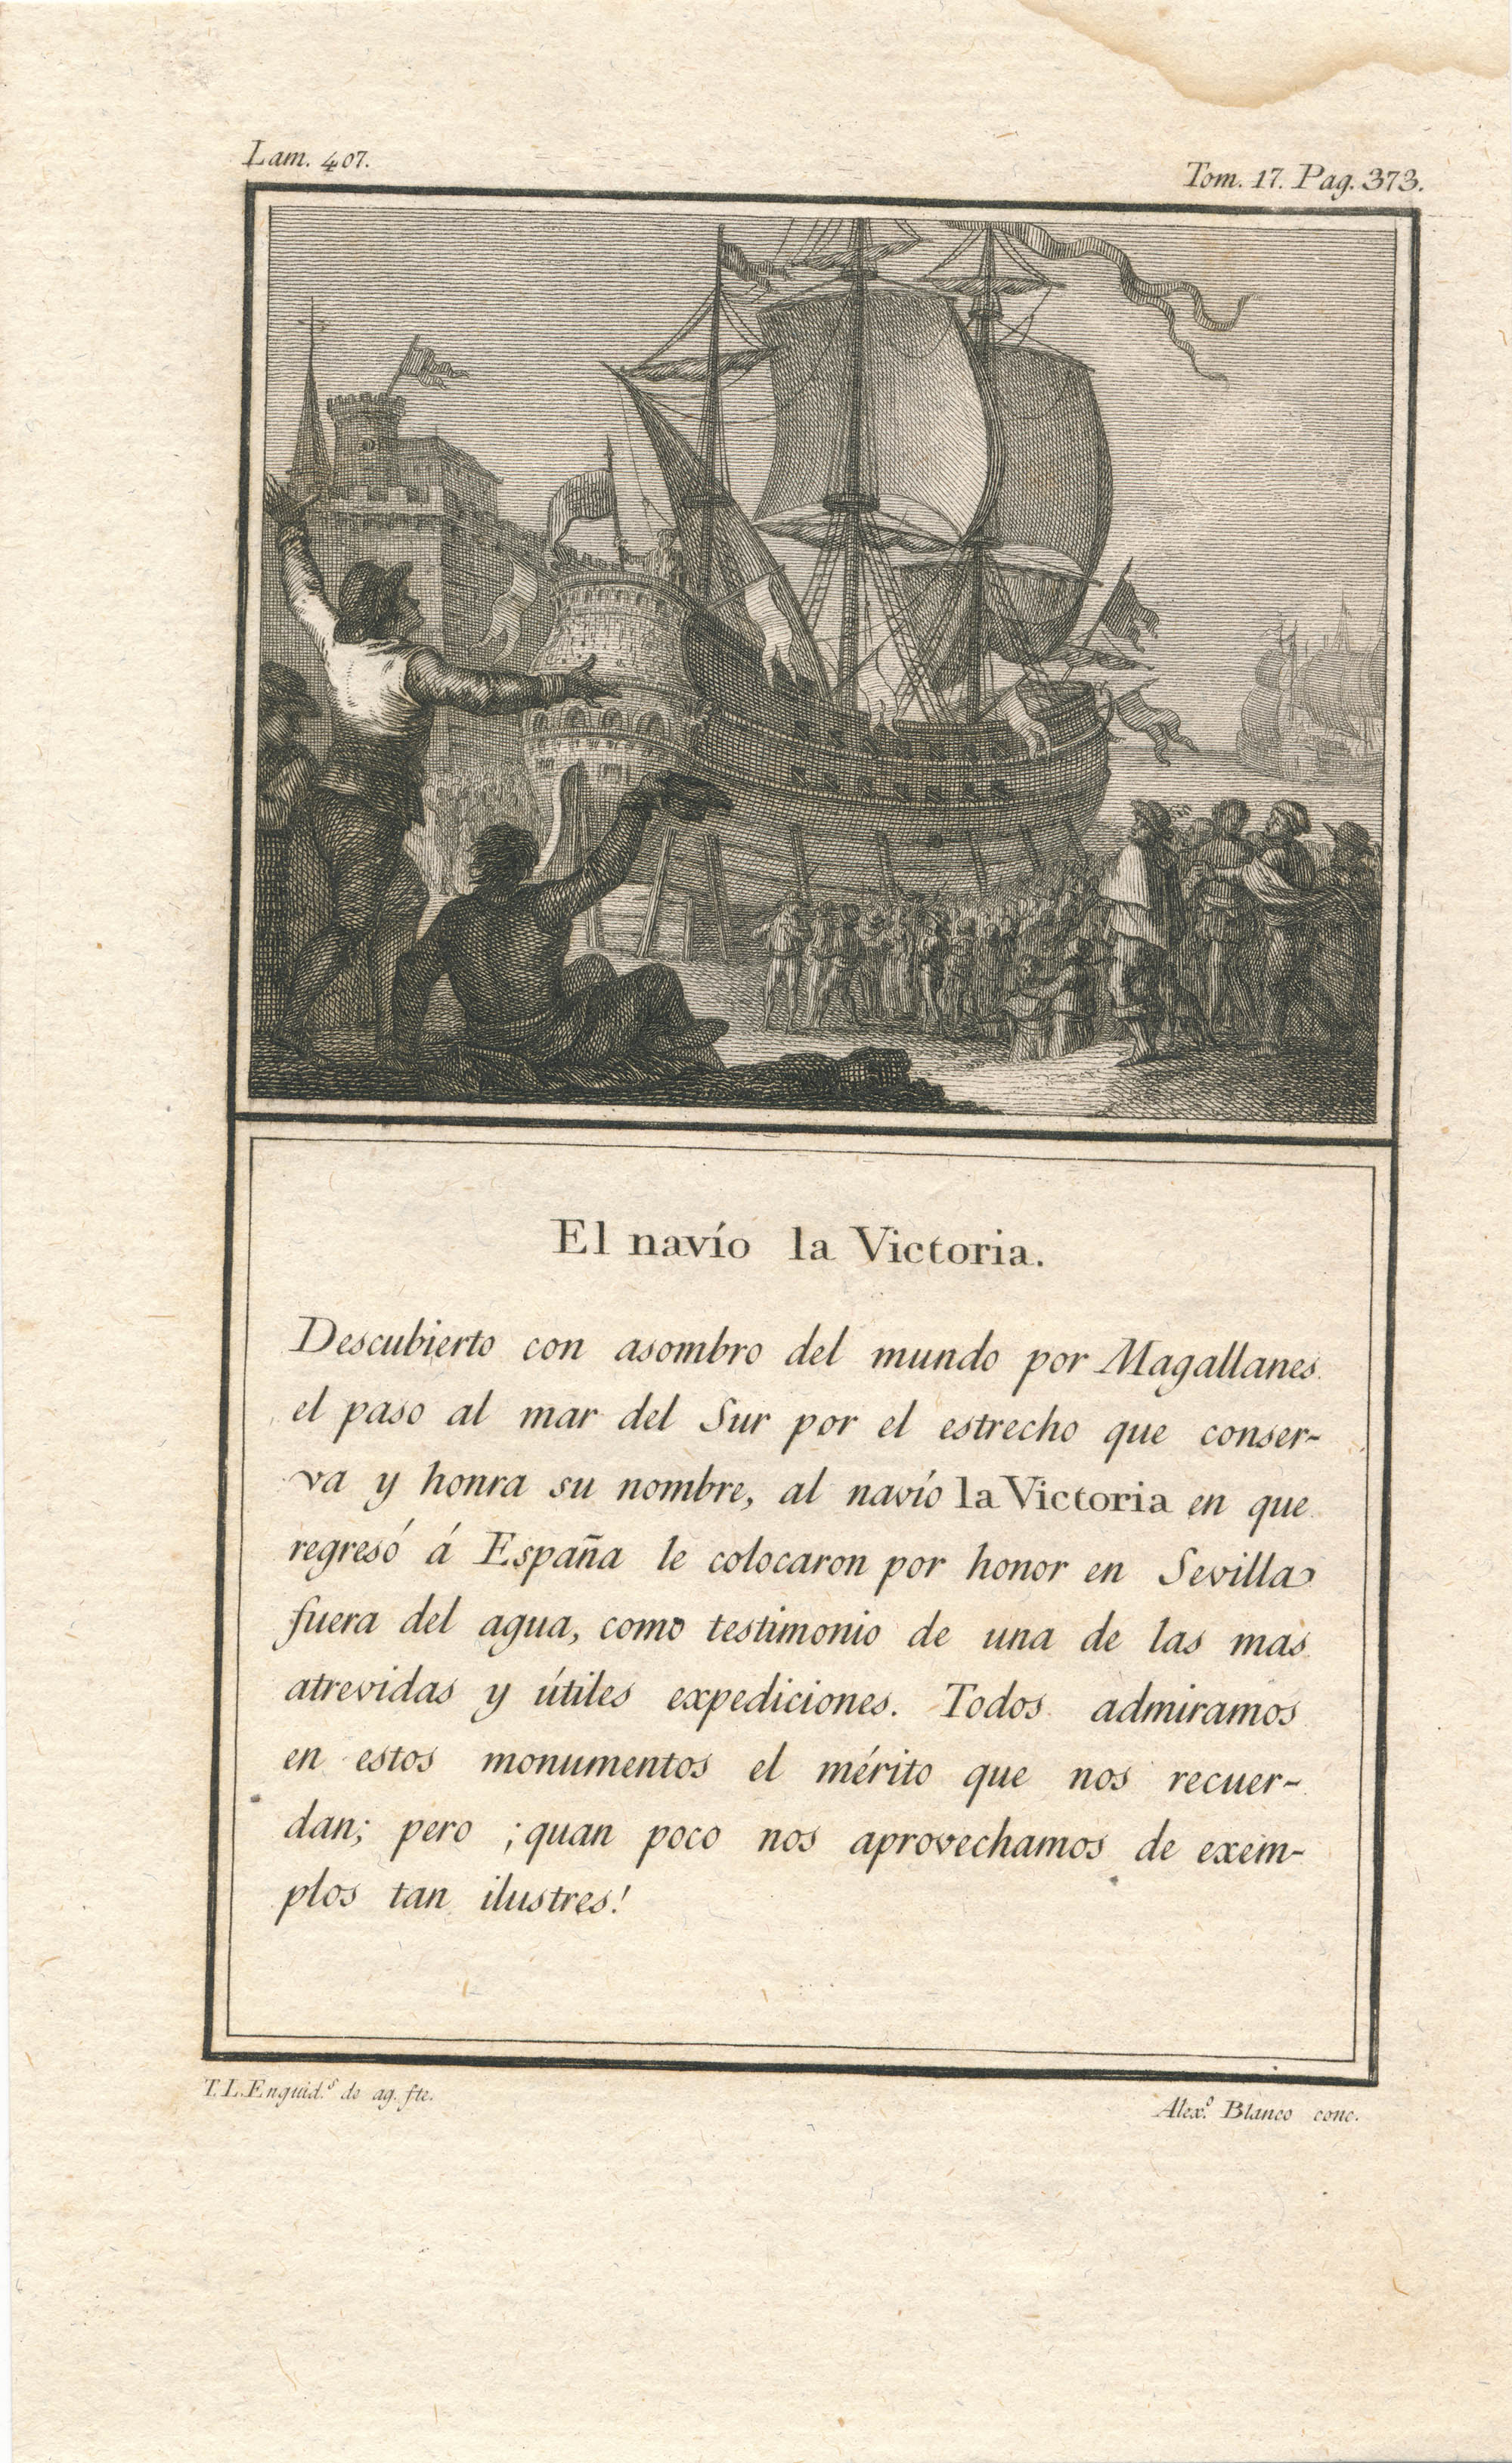 Lam. 407.
Tom. 17. Pag. 373.
El navío la Victoria.
Descubierto con asombro del mundo por Magallanes
el paso al mar del Sur por el estrecho que conser-
va y honra su nombre, al navío la Victoria en que
regresó á España le colocaron por honor en Sevilla
fuera del agua, como testimonio de una de las mas
atrevidas y útiles expediciones. Todos admiramos
en estos monumentos el mérito que nos recuer-
dan; pero ¡quan poco nos aprovechamos de exem-
plos tan ilustres!
T. L. Enguid.s de ag. fte.
Alex.o Blanco conc.